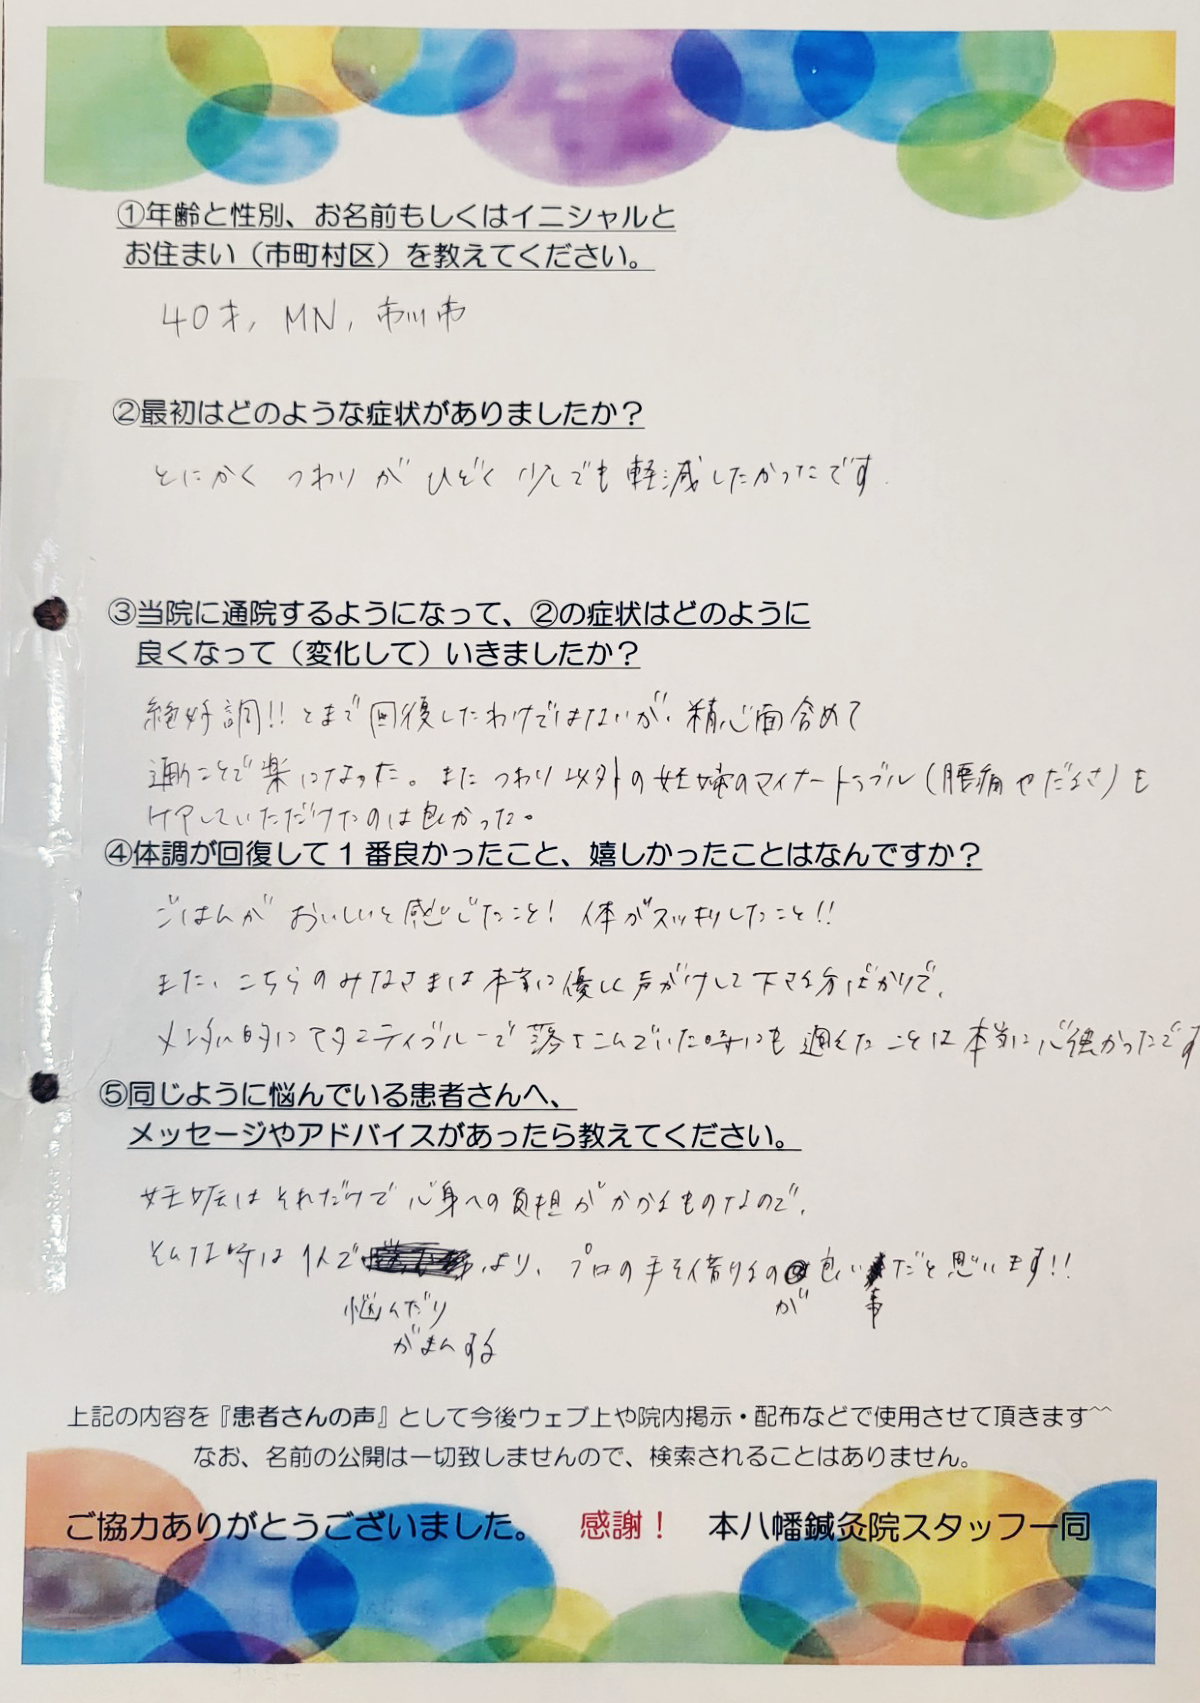 ①年齢と性別、お名前もしくはイニシャルと
お住まい（市町村区）を教えてください。
40才, MN, 市川市
②最初はどのような症状がありましたか？
とにかく つわりが ひどく 少しでも軽減したかったです.
③当院に通院するようになって、②の症状はどのように
良くなって（変化して）いきましたか？
絶好調!! とまで回復したわけではないが、精神面含めて
通うことで楽になった。また つわり以外の妊婦のマイナートラブル（腰痛やだるさ）も
ケアしていただけたのは良かった。
④体調が回復して１番良かったこと、嬉しかったことはなんですか？
ごはんが おいしいと感じたこと! 体がスッキリしたこと!!
また、こちらのみなさまは本当に優しく声がけして下さる方ばかりで、
メンタル的にマタニティブルーで落ちこんでいた時にも通えたことは本当に心強かったです
⑤同じように悩んでいる患者さんへ、
メッセージやアドバイスがあったら教えてください。
妊娠はそれだけで心身への負担がかかるものなので、
そんな時は1人で より、プロの手を借りるの 良い だと思います!!
悩んだり が 事
がまんする
上記の内容を『患者さんの声』として今後ウェブ上や院内掲示・配布などで使用させて頂きます^^
なお、名前の公開は一切致しませんので、検索されることはありません。
ご協力ありがとうございました。 感謝！ 本八幡鍼灸院スタッフ一同